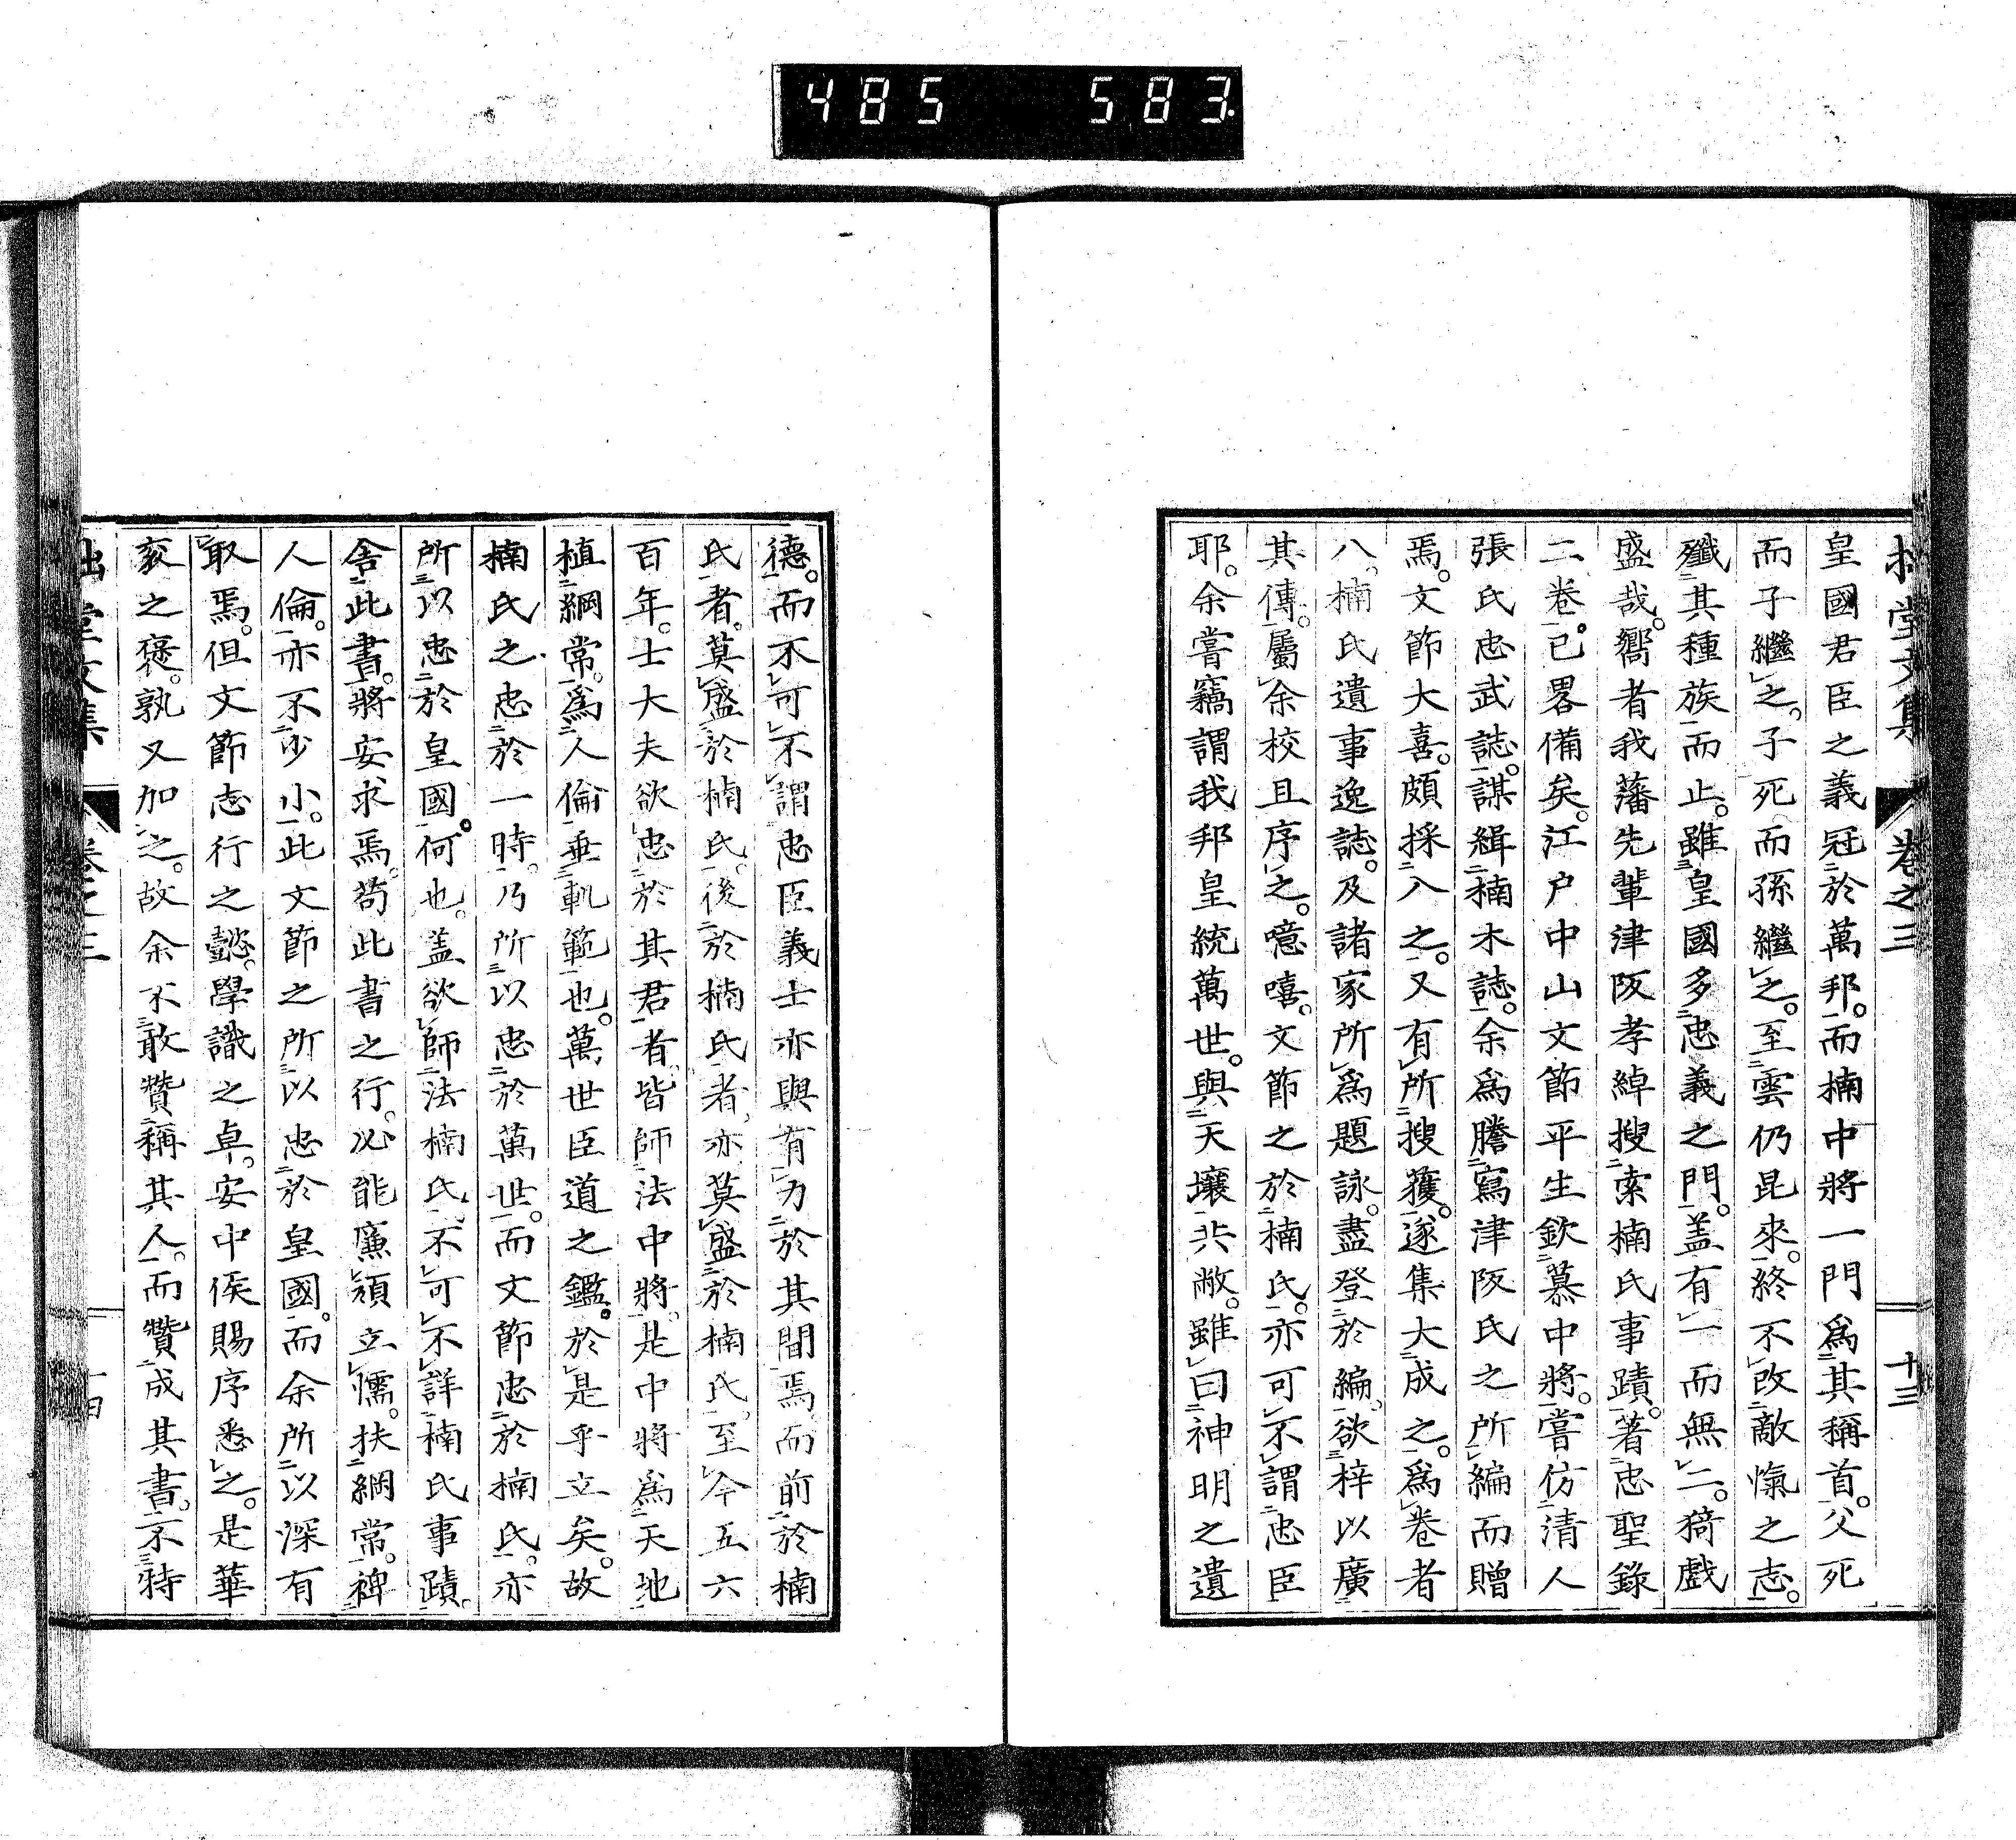 485 583
拙堂文集 卷之三 十三
皇國君臣之義冠於萬邦。而楠中將一門爲其稱首。父死
而子繼之。子死而孫繼之。至雲仍昆來。終不改敵愾之志。
殲其種族而止。雖皇國多忠義之門。盖有一而無二。猗戲
盛哉。嚮者我藩先輩津阪孝綽搜索楠氏事蹟。著忠聖錄
二卷。已畧備矣。江户中山文節平生欽慕中將。嘗仿清人
張氏忠武誌。謀緝楠木誌。余爲謄寫津阪氏之所編而贈
焉。文節大喜。頗採入之。又有所搜獲。遂集大成之。爲卷者
八。楠氏遺事逸誌。及諸家所爲題詠。盡登於編。欲梓以廣
其傳。屬余校且序之。噫嘻。文節之於楠氏。亦可不謂忠臣
耶。余嘗竊謂我邦皇統萬世。與天壤共敝。雖曰神明之遺
德。而不可不謂忠臣義士亦與有力於其間焉。而前於楠
氏者。莫盛於楠氏。後於楠氏者、亦莫盛於楠氏。至今五六
百年。士大夫欲忠於其君者。皆師法中將。是中將爲天地
植綱常。爲人倫垂軌範也。萬世臣道之鑑。於是乎立矣。故
楠氏之忠於一時。乃所以忠於萬世。而文節忠於楠氏。亦
所以忠於皇國。何也。盖欲師法楠氏、不可不詳楠氏事蹟。
舍此書。將安求焉。苟此書之行。必能廉頑立懦。扶綱常。裨
人倫。亦不少小。此文節之所以忠於皇國。而余所以深有
取焉。但文節志行之懿。學識之卓。安中侯賜序悉之。是華
衮之襃。孰又加之。故余不敢贊稱其人。而贊成其書。不特
拙堂文集 卷之三 十四